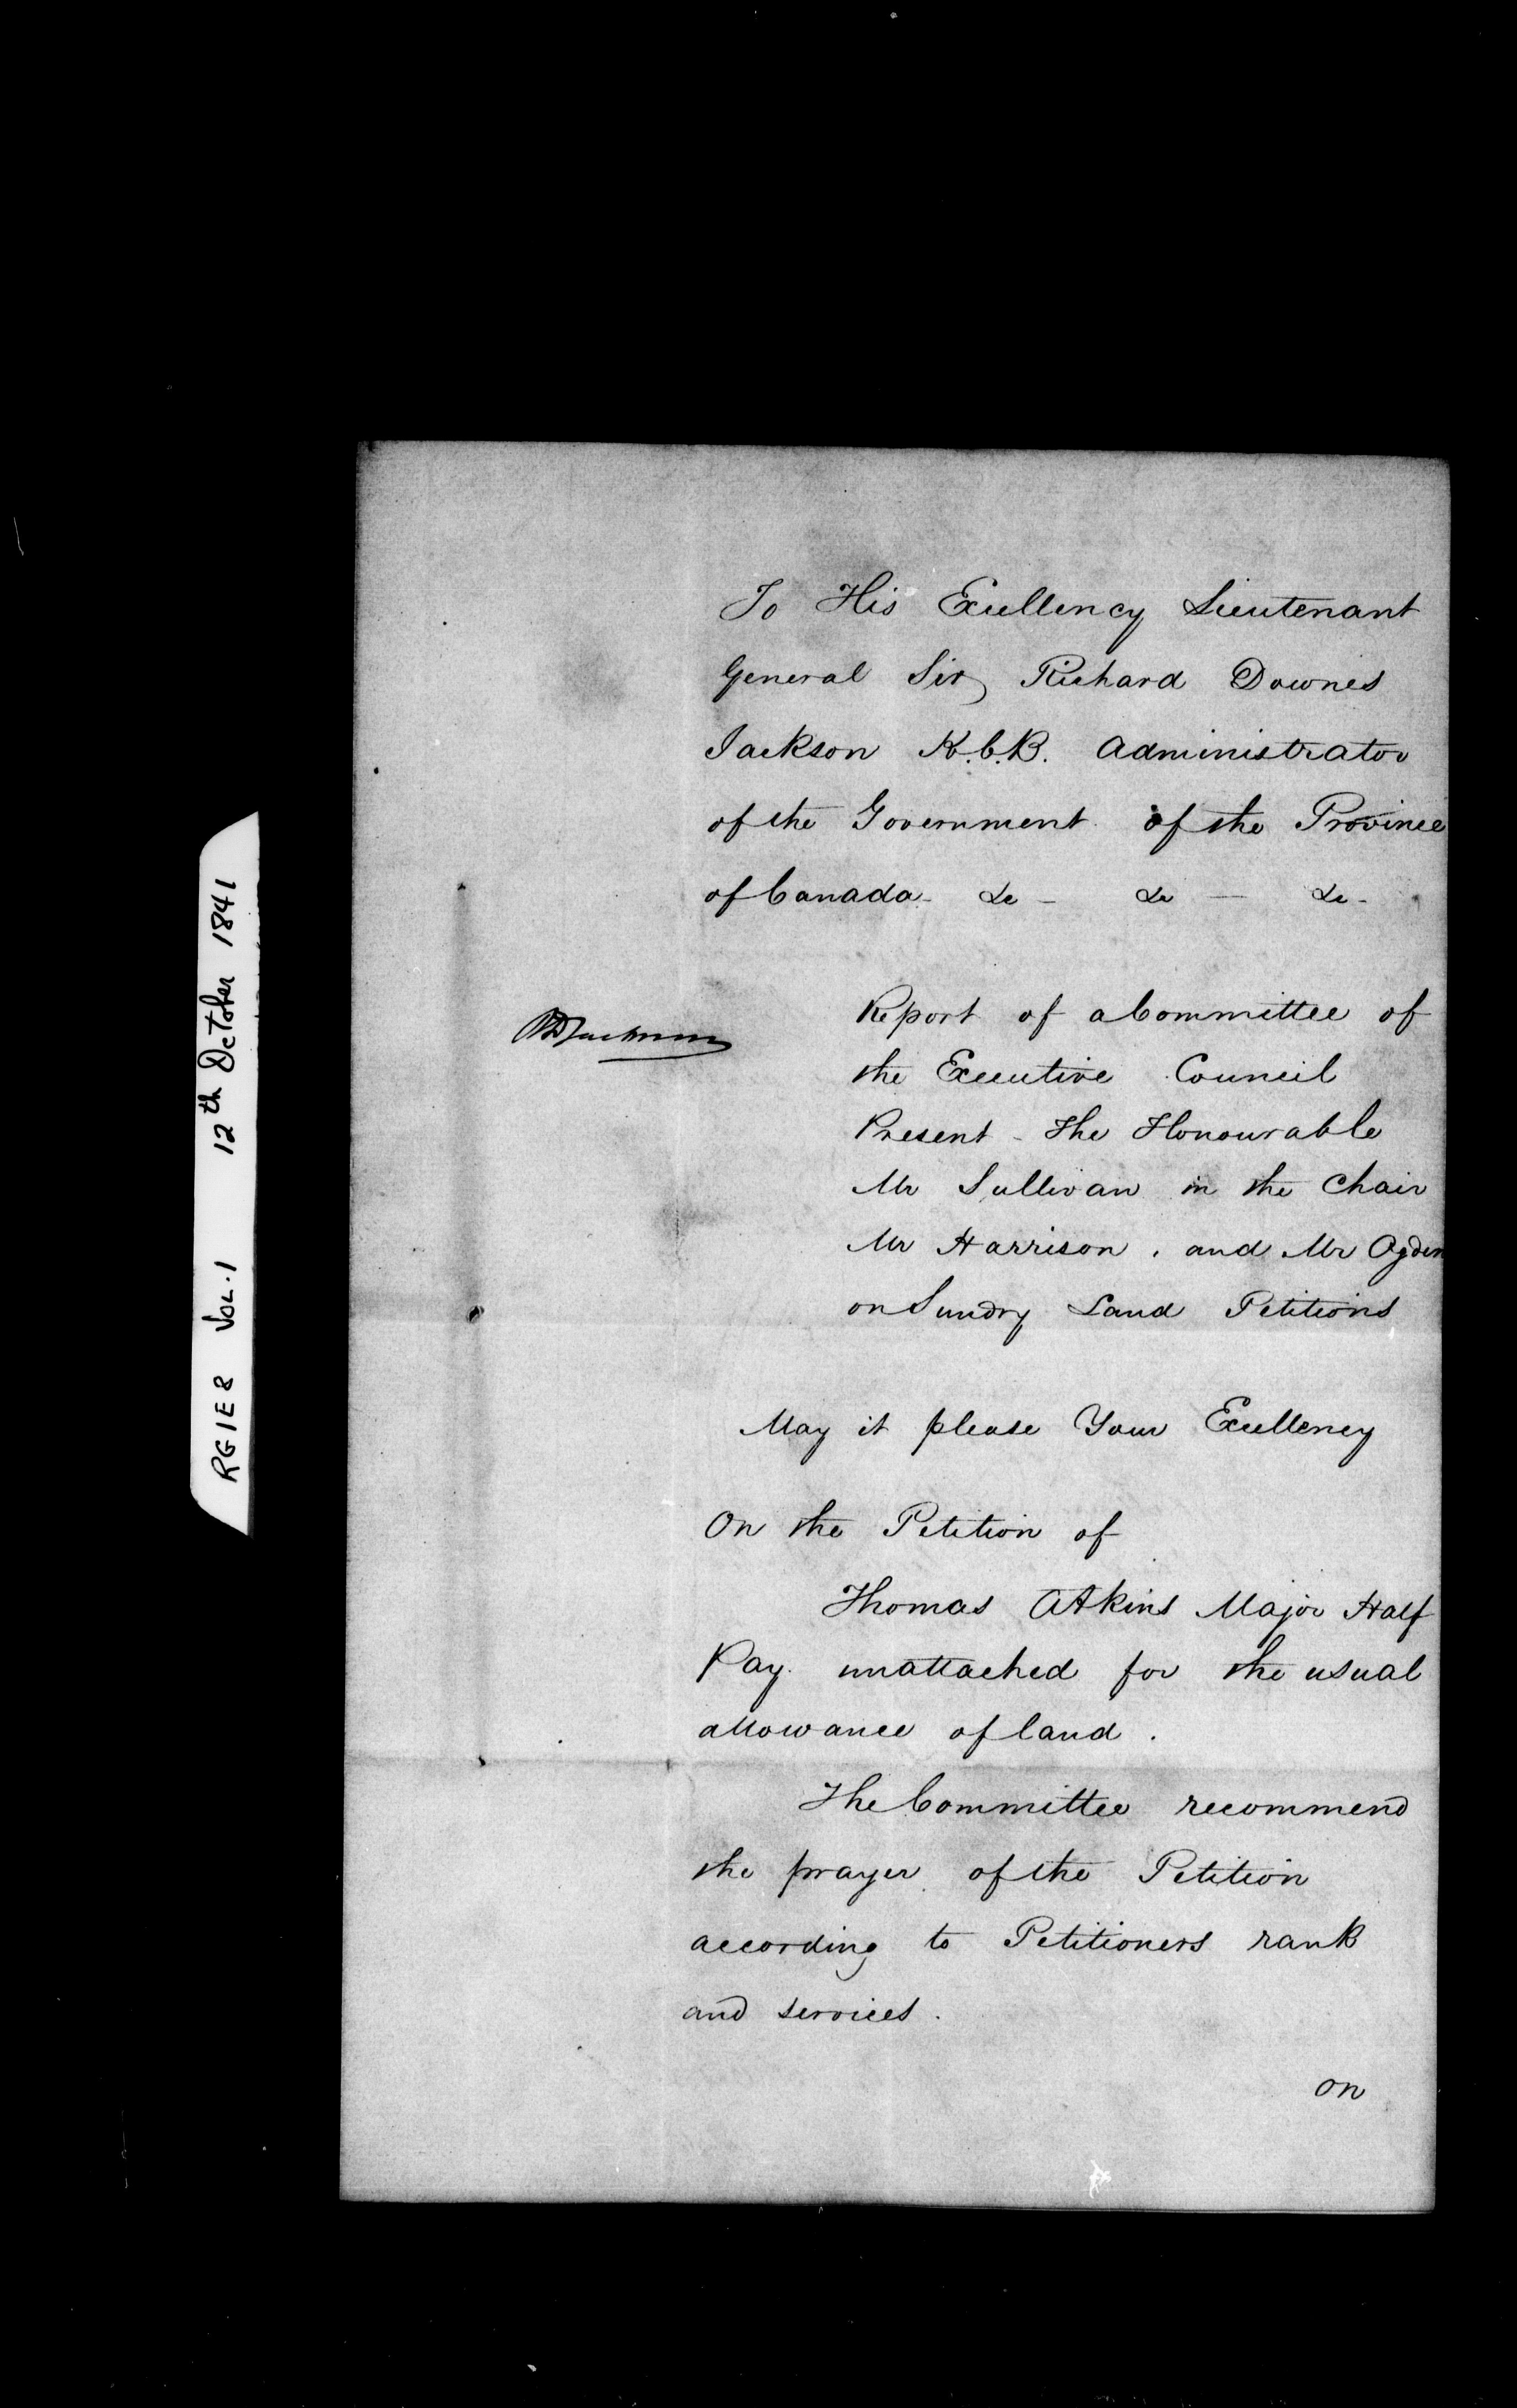 RG1E8 VOL.1 12th October 1841
To His Excellency Lieutenant
General Sir Richard Downes
Jackson K.C.B. Administrator
of the Government of the Province
of Canada - &c - &c — &c -
RDJackson
Report of a Committee of
the Executive Council
Present - The Honourable
Mr Sullivan in the Chair
Mr Harrison, and Mr Ogden
on Sundry Land Petitions
May it please Your Excellency
On the Petition of
Thomas Atkins Major Half
Pay unattached for the usual
allowance of land.
The Committee recommend
the prayer of the Petition
according to Petitioners rank
and services.
on